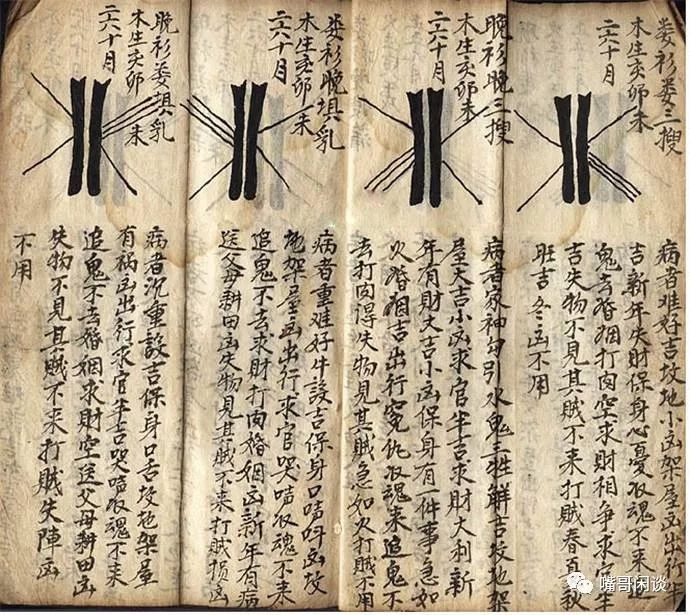 娄衫娄三搜
木生亥卯未
二六十月
病者难好吉坟地小凶架屋凶出行半
吉新年失財保身心憂収魂不来追
鬼去婚姻打肉空求財相争求官
吉失物不見其賊不来打賊春夏
旺吉冬凶不用
晚衫晚三搜
木生亥卯未
二六十月
病者家神勾引水鬼三牲解吉坟地架
屋大吉小凶求官半吉求財大利新
年有財大吉小凶保身有一件事急如
火婚姻吉出行寃仇収魂来追鬼不
去打肉得失物見其賊急如火打賊不用
娄衫晚埧乳
木生亥卯未
二六十月
病者重难好牛設吉保身口咭呌凶坟
地架屋凶出行求官哭咭収魂不来
追鬼不去求財打肉婚姻凶新年有病
送父母耕田凶失物見其賊不来打賊損凶
晚衫娄埧乳
木生亥卯未
二六十月
病者沉重設吉保身口舌坟地架屋
有禍凶出行求官半吉哭咭収魂不来
追鬼不去婚姻求財空送父母耕田凶
失物不見其賊不来打賊失陣凶
不用
嘴哥闲谈